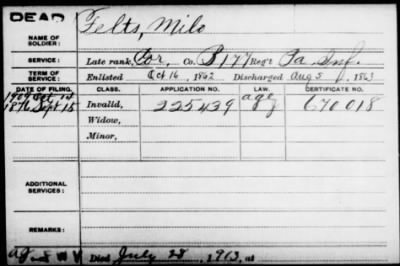 DEAD
NAME OF SOLDIER: Felts, Milo
SERVICE: Late rank, Cor, Co. B 177 Reg't Pa Inf.
TERM OF SERVICE: Enlisted Oct 16, 1862 Discharged Aug 5, 1863
DATE OF FILING. CLASS. APPLICATION NO. LAW. CERTIFICATE NO.
1909 Oct 1st age
1876 Sept 15 Invalid, 225439 670018
Widow,
Minor,
ADDITIONAL SERVICES:
REMARKS:
Died July 28, 1913, at